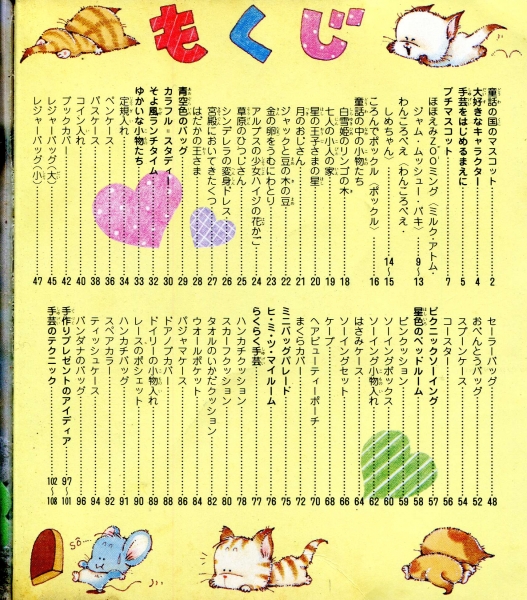 もくじ
童話の国のマスコット 2
大好きなキャラクター 4
手芸をはじめるまえに 5
プチマスコット 7
ほほえみZOOミング〈ミルク・アトム・
ジャム・ムッシュー・パキ〉 9〜13
わんころべえ〈わんころべえ・
しめちゃん〉 14〜15
ころんでポックル〈ポックル〉 16
童話の中の小物たち
白雪姫のリンゴの木 18
七人の小人の家 19
星の王子さまの星 20
月のおじさん 21
ジャックと豆の木の豆 22
金の卵をうむにわとり 23
アルプスの少女ハイジの花かご 24
草原のひつじさん 25
シンデレラの変身ドレス 26
宮殿においてきたくつ 27
はだかの王さま 28
青空色のバッグ 29
カラフル・スタディー 30
そよ風ランチタイム 32
ゆかいな小物たち 33
定規入れ 34
ペンケース 36
パスケース 38
コイン入れ 40
ブックカバー 42
レジャーバッグ〈大〉 45
レジャーバッグ〈小〉 47
セーラーバッグ 48
おべんとうバッグ 52
スプーンケース 54
コースター 56
ピクニックソーイング 57
星色のベッドルーム 58
ピンクッション 59
ソーイングボックス 60
ソーイング小物入れ 62
はさみケース 64
ソーイングセット 66
ケープ 68
ヘアビューティーポーチ 70
まくらカバー 72
ミニバッグパレード 75
ヒ・ミ・ツ・マイルーム 76
らくらく手芸 77
ハンカチクッション 78
スカーフクッション 80
タオルのいかだクッション 82
ウォールポケット 84
パジャマケース 86
ドアノブカバー 88
ドイリーの小物入れ 89
レースのポシェット 90
ハンカチバッグ 91
スペアカラー 92
ティッシュケース 94
バンダナのバッグ 96
手作りプレゼントのアイディア 97〜101
手芸のテクニック 102〜108